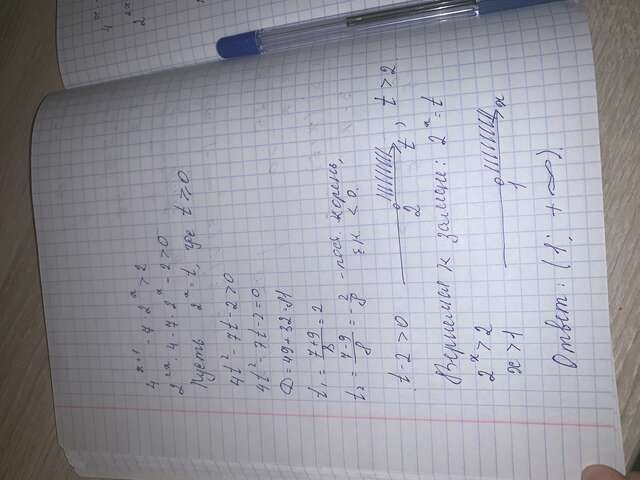 4^{x+1} - 7 · 2^x > 2
2^{2x} · 4 - 7 · 2^x - 2 > 0
Пусть 2^x = t, где t ⩾ 0
4t² - 7t - 2 > 0
4t² - 7t - 2 = 0
D = 49 + 32 = 81
t₁ = (7+9)/8 = 2
t₂ = (7-9)/8 = -2/8 - пост. корень,
т.к. < 0.
t - 2 > 0 2 t , t > 2
Вернемся к замене: 2^x = t
2^x > 2
x > 1 1 x
Ответ: (1; +∞).
4^x
2^{2x}